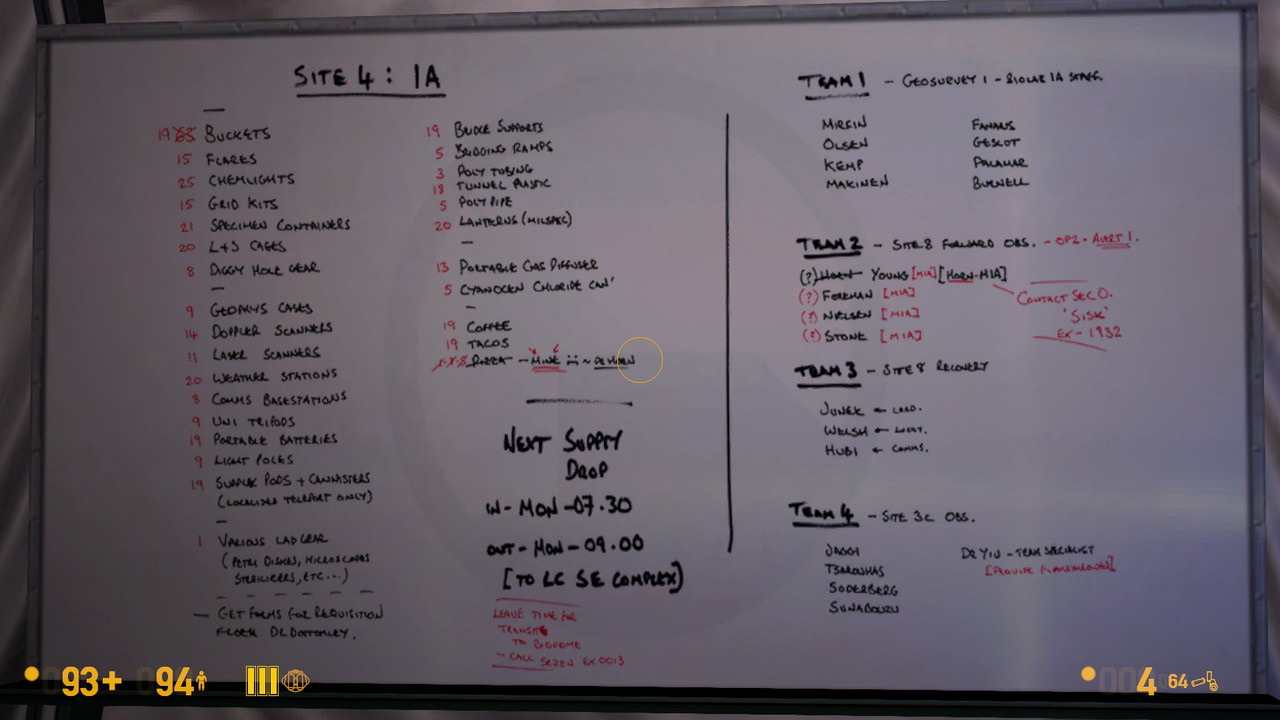 SITE 4 : IA
19 BUCKETS
15 FLARES
25 CHEMLIGHTS
15 GRID KITS
21 SPECIMEN CONTAINERS
20 L+D CAGES
8 DIGGY HOLE GEAR
9 GEOPHYS CASES
14 DOPPLER SCANNERS
11 LASER SCANNERS
20 WEATHER STATIONS
8 COMMS BASESTATIONS
9 UNI TRIPODS
19 PORTABLE BATTERIES
9 LIGHT POLES
19 SUPPLY PODS + CANNISTERS
(LOCALISED TELEPORT ONLY)
1 VARIOUS LAB GEAR
(PETRI DISHES, MICROSCOPES
STERILICERS, ETC...)
— GET FORMS FOR REQUISITION
FROM DR BOTTOMLEY.
19 BRIDGE SUPPORTS
5 RAMPS
3 POLY TUBING
18 TUNNEL PLASTIC
5 POLY PIPE
20 LANTERNS (MILSPEC)
13 PORTABLE GAS DIFFUSER
5 CYANOGEN CHLORIDE CAN'
19 COFFEE
19 TACOS
PIZZA - MINE
NEXT SUPPLY
DROP
IN - MON - 07.30
OUT - MON - 09.00
[TO LC SE COMPLEX]
LEAVE TIME FOR
TRANSIT
TO BIODOME
- CALL EX 0013
TEAM 1 - GEOSURVEY 1 - IA STAFF.
MIRSIN
OLSEN
KEMP
MAKINEN
GESLOT
PALAMAR
BURNELL
TEAM 2 - SITE 8 FORWARD OBS. - OP2 - ALERT 1.
(?) HORN YOUNG [MIA] [HORN-MIA]
(?) FOREMAN [MIA]
(?) NIELSEN [MIA]
(?) STONE [MIA]
CONTACT SEC O.
'SISK'
EX - 1932
TEAM 3 - SITE 8 RECOVERY
JUNEK ← LEAD.
WELSH ←
HUBI ← COMMS.
TEAM 4 - SITE 3C OBS.
JAGGI
TSAROUHAS
SODERBERG
DR YIU - TEAM SPECIALIST
093+ 094
004 064